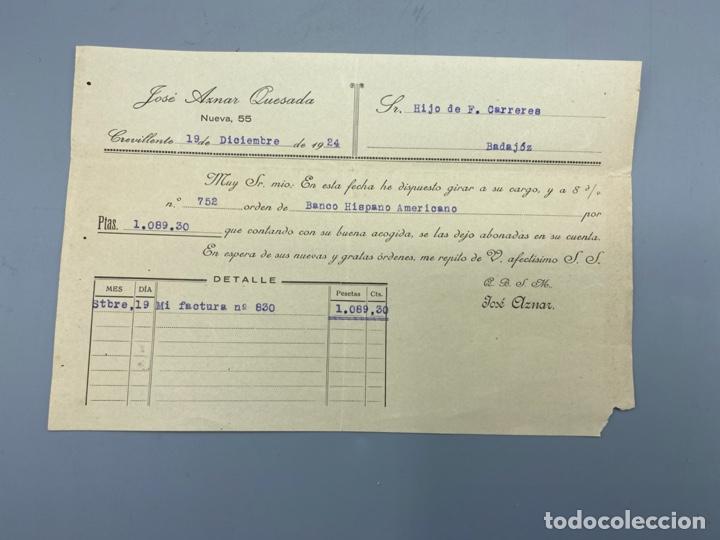 José Aznar Quesada
Nueva, 55
Crevillente 19 de Diciembre de 1924
Sr. Hijo de F. Carreres
Badajóz
Muy Sr. mio: En esta fecha he dispuesto girar a su cargo, y a 8 d/v
n.º 752 orden de Banco Hispano Americano por
Ptas. 1.089.30 que contando con su buena acogida, se las dejo abonadas en su cuenta.
En espera de sus nuevas y gratas órdenes, me repito de V. afectísimo S. S.
Q. B. S. M.,
José Aznar.
DETALLE
MES DÍA Pesetas Cts.
Stbre, 19 Mi factura nº 830 1.089,30
todocoleccion.net